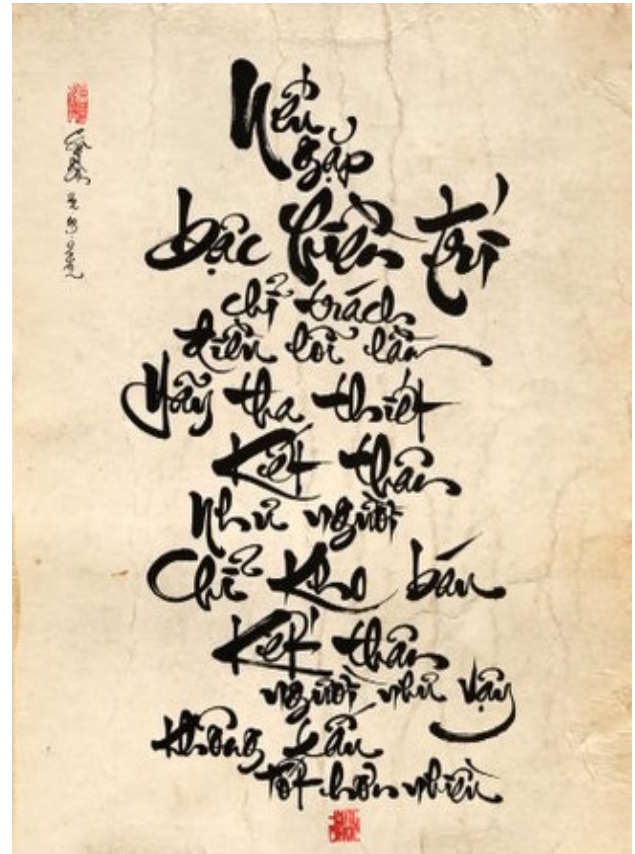 Nếu
gặp
bậc hiền trí
chỉ trách
điều lỗi lầm
Hãy tha thiết
Kết thân
Như người
Chỉ kho báu
Kết thân
người như vậy
không xấu
tốt hơn nhiều